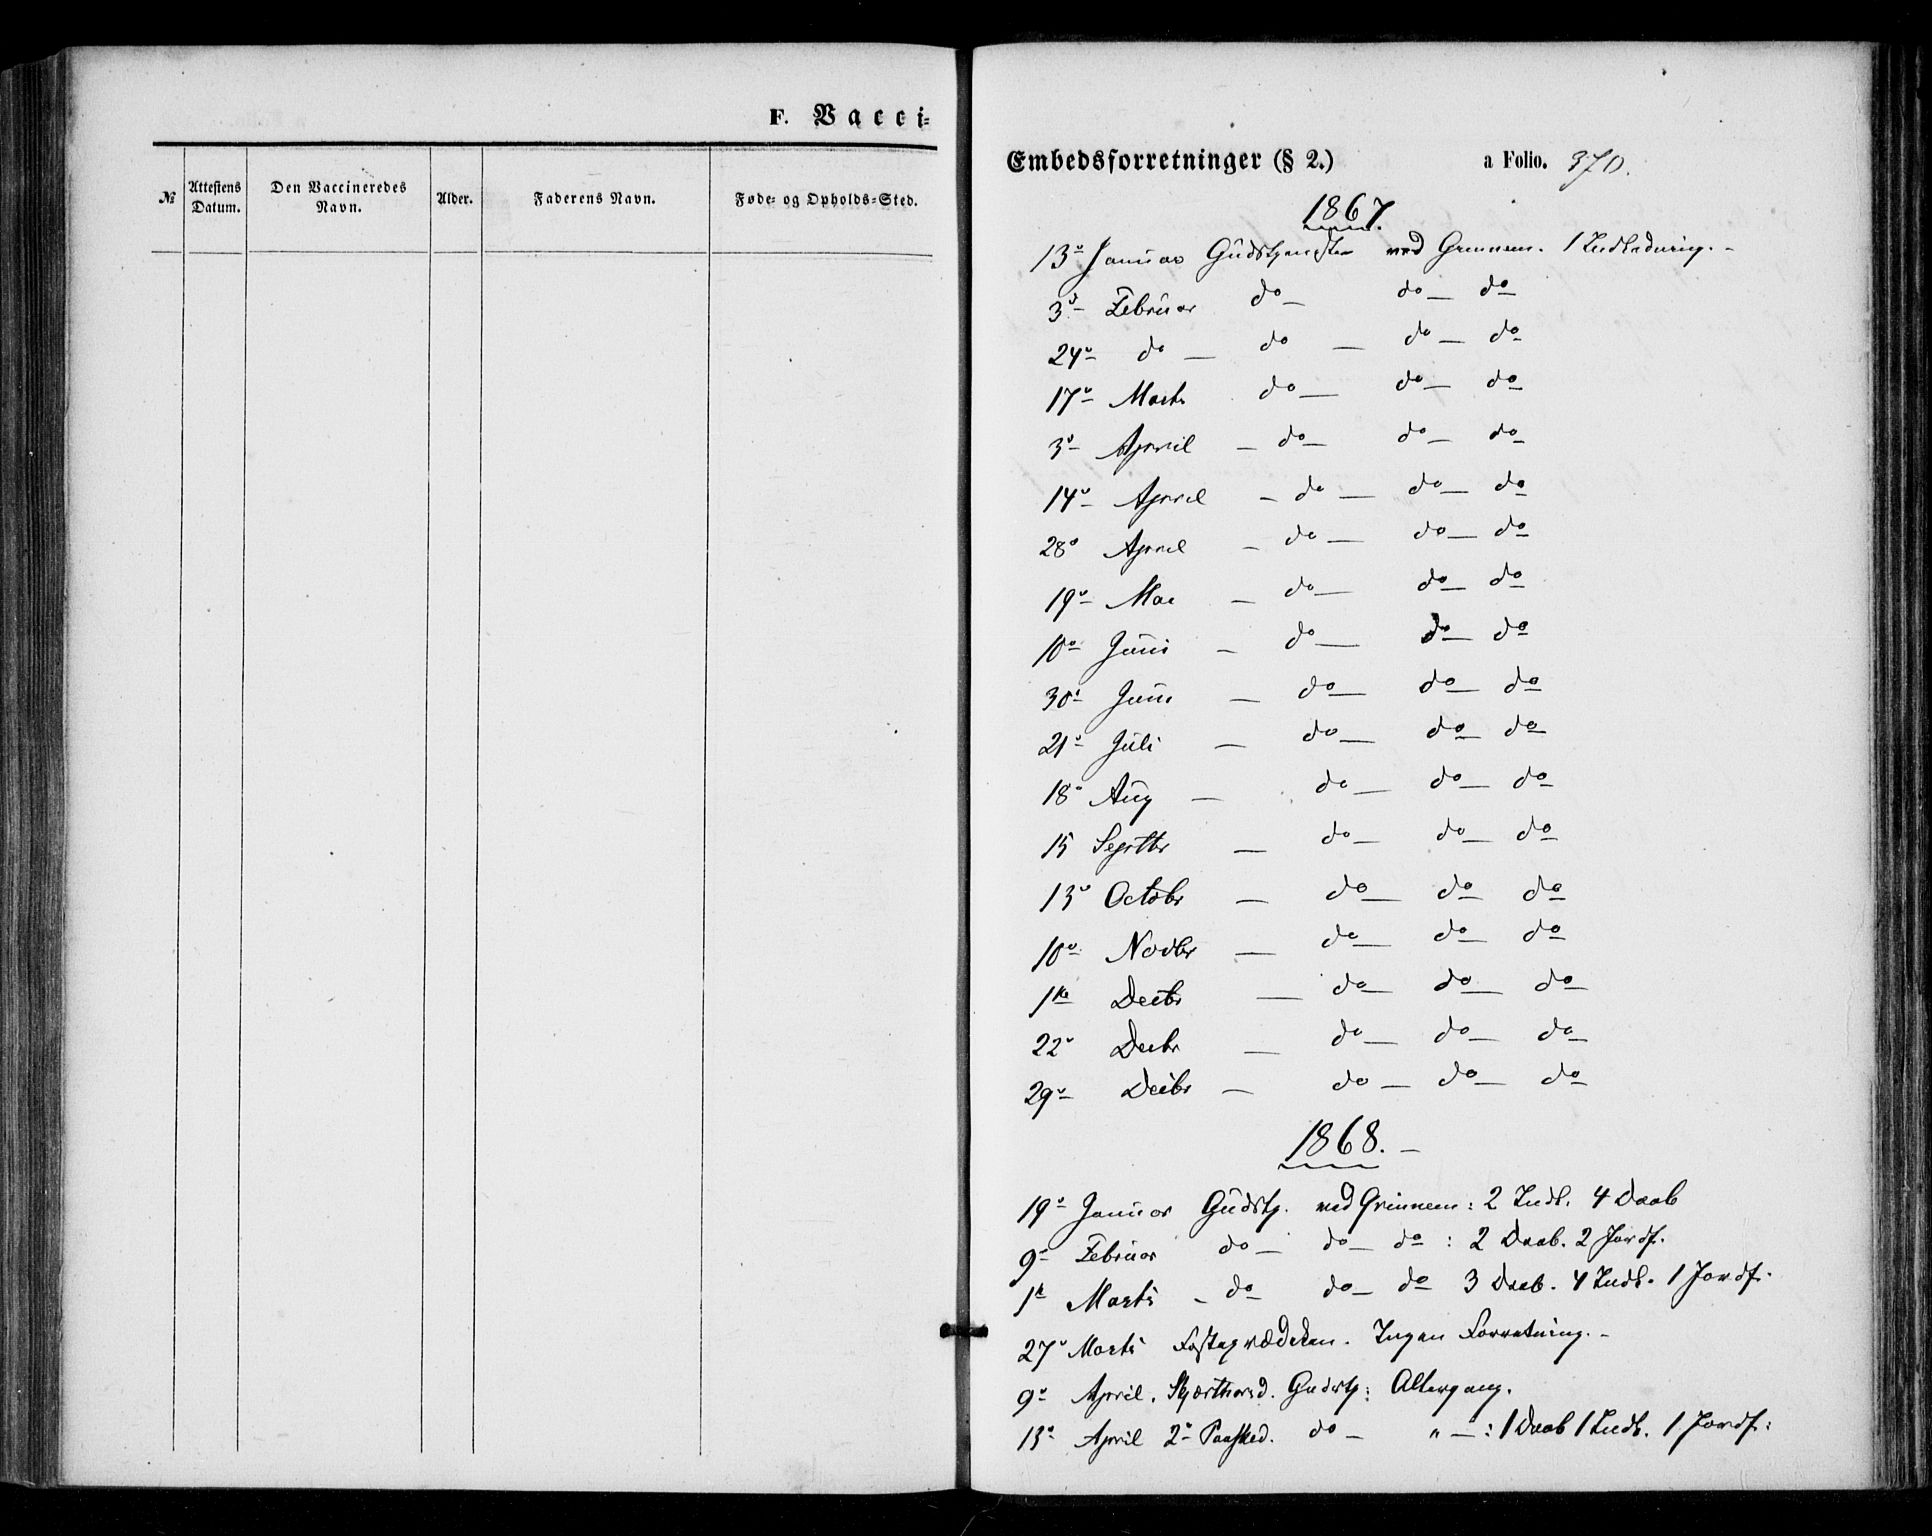 F. Vacci-
№ Attestens Datum. Den Vaccineredes Navn. Alder. Faderens Navn. Føde- og Opholds-Sted.
Embedsforretninger (§ 2.) a Folio. 370.
1867.
13de Januar Gudstjeneste ved 1 Indledning. -
3de Februar do - do - do
24de do - do - do - do
17de Marts do - do - do
3de April - do - do - do
14de April - do - do - do
28de April - do - do - do
19de Mai - do - do - do
10de Juni - do - do - do
30te Juni - do - do - do
21de Juli - do - do - do
18de Aug - do - do - do
15 Septbr - do - do - do
13de Octobr - do - do - do
10de Novbr - do - do - do
1ste Decbr - do - do - do
22de Decbr - do - do - do
29de Decbr - do - do - do
1868. -
19de Januar Gudstj. ved : 2 Indl. 4 Daab
9de Februar do - do - do : 2 Daab. 2 Jordf.
1ste Marts - do do - do 3 Daab. 4 Indl. 1 Jordf.
27de Marts Fasteprædiken. Ingen Forretning. -
9de April. Skjærthorsd. Gudstj: Altergang.
13de April 2den Paasked. do - " - : 1 Daab 1 Indl. 1 Jordf: